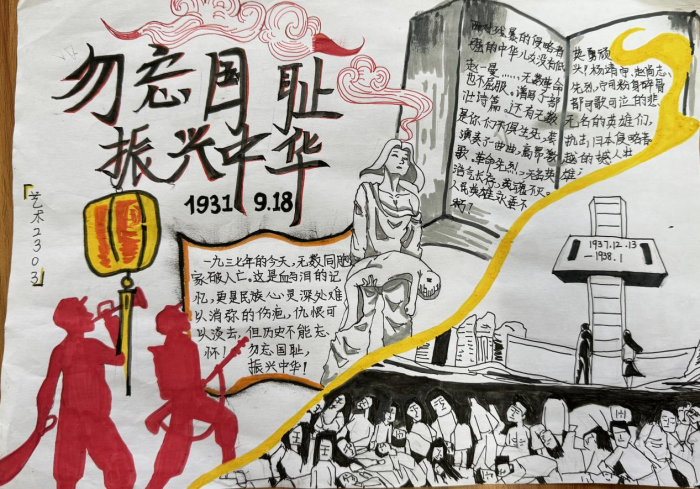 勿忘国耻
振兴中华
1931 9.18
艺术2303
一九三七年的今天，无数同胞
家破人亡。这是血与泪的记
忆，更是民族心灵深处难
以消弥的伤疤，仇恨可
以淡去，但历史不能忘
怀！勿忘国耻，
振兴中华！
面对残暴的侵略者
强的中华儿女没有低
赵一曼……无数革命
也不屈服。谱写了部
壮诗篇。还有无数
是你们不惧生死，奏
演奏了一曲曲高昂
歌。革命先烈，无名英雄
浩气长存，永垂不
人民英雄永垂不
朽？
英勇顽
头！杨靖宇、赵尚志、
先烈，宁可粉身碎骨
都可歌可泣的悲
无名的英雄们，
抗击日本侵略者
越的
1937.12.13
—1938.1